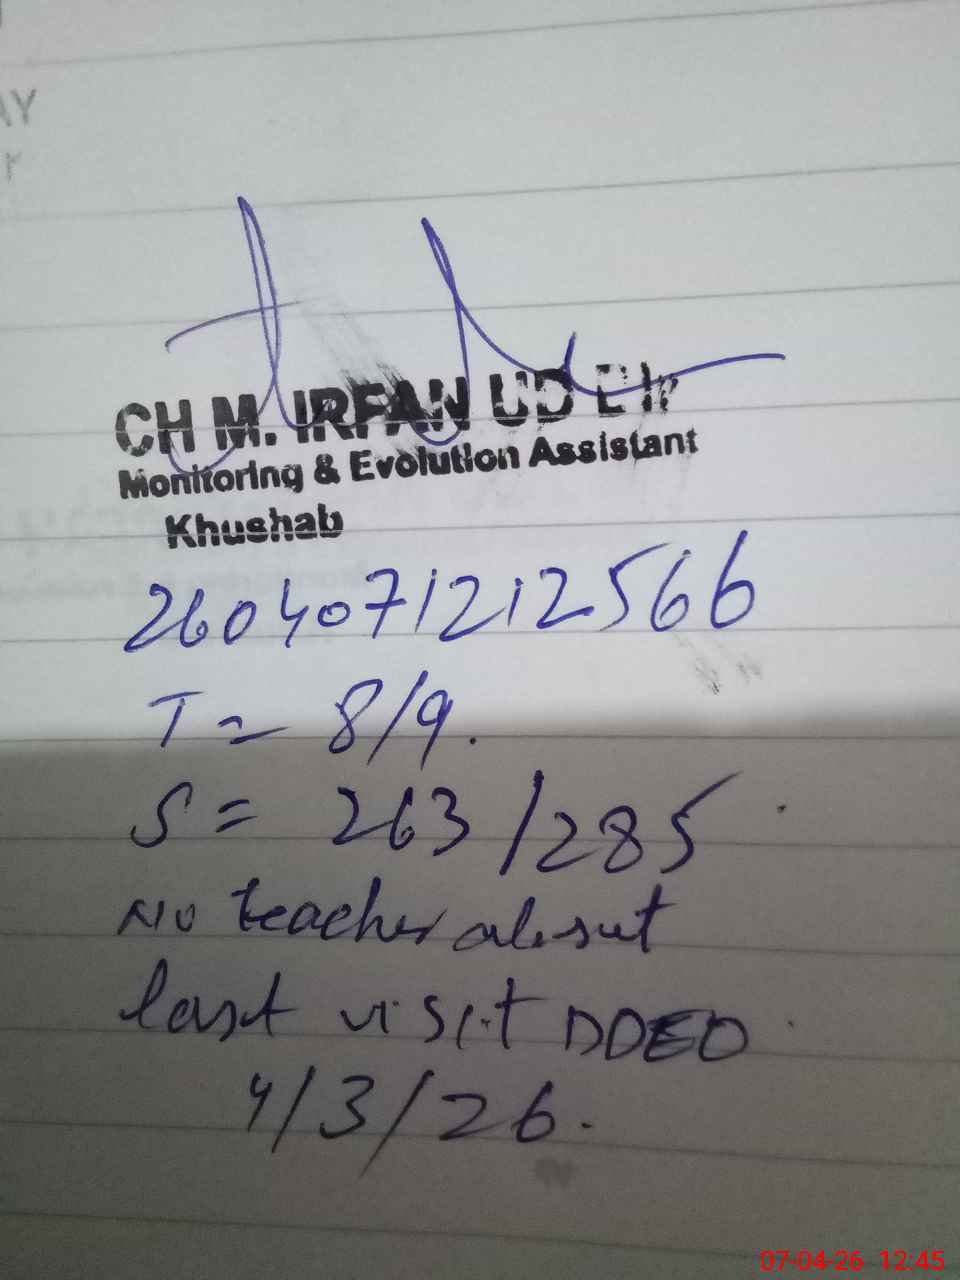 AY
r
CH M. IRFAN UD
Monitoring & Evolution Assistant
Khushab
2604071212566
T = 8/9.
S = 263/285
No teacher absent
last visit DDEO
4/3/26.
07-04-26 12:45